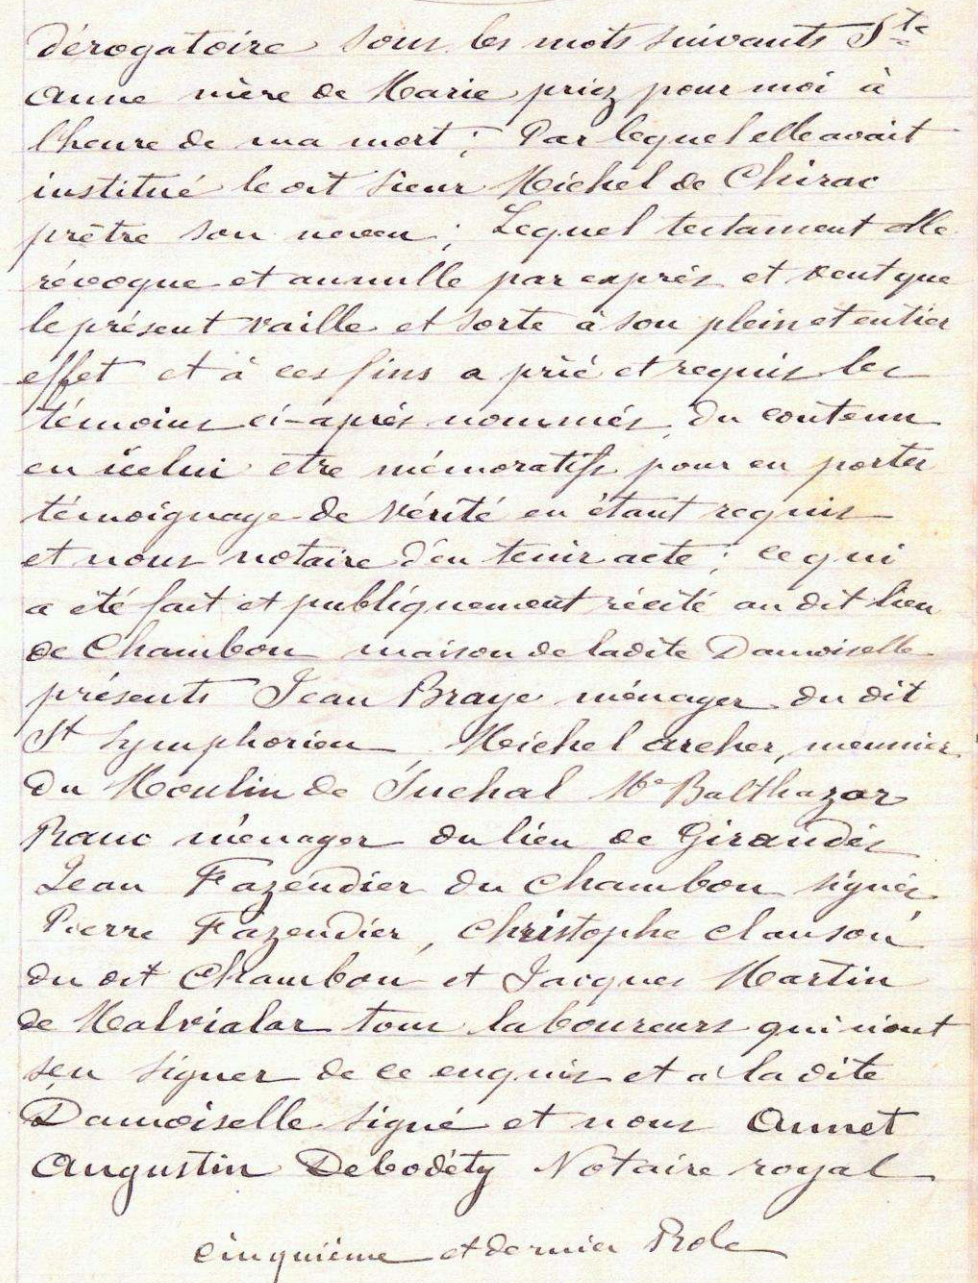 dérogatoire sous les mots suivants Ste
Anne mère de Marie priez pour moi à
l'heure de ma mort ; Par lequel elle avait
institué le dit Sieur Michel de Chirac
prêtre son neveu ; Lequel testament elle
révoque et annulle par exprès et veut que
le présent vaille et sorte à son plein et entier
effet et à ces fins a prié et requis les
témoins ci-après nommés du contenu
en icelui etre mémoratifs pour en porter
témoignage de vérité en étant requis
et nous notaire d'en tenir acte ; ce qui
a été fait et publiquement récité au dit lieu
de Chambon maison de ladite Damoiselle
présents Jean Braye ménager du dit
St Symphorien Michel Archer, meunier
du Moulin de Suchal Me Balthazar
Ranc ménager du lieu de Giraudès
Jean Fazendier du Chambon signés
Pierre Fazendier, Christophe Clauson
du dit Chambon et Jacques Martin
de Malvialar tous laboureurs qui n'ont
seu signer de ce enquis et a la dite
Damoiselle signé et nous Annet
Augustin Debodéty Notaire royal
cinquième et dernier Role